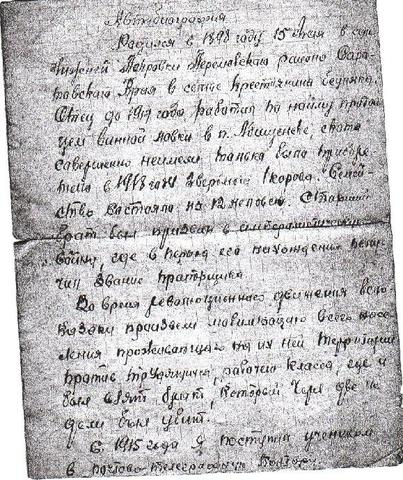 Автобиография
Родился в 1898 году 15 Мая в селе
Нижней Покровки Перелюбского района Сара-
товского Края в семье крестьянина бедняка.
Отец до 1917 года работал по найму продав-
цем винной лавки в п. скота
совершенно неимел только было приобре-
тено в 1918 году 2 верблюд 1 корова. Семей-
ство состояло из 12 человек. Старший
брат был призван в империалистическую
войну, где в период его нахождения полу-
чил звание прапорщика
Во время революционного движения
казаки произвели мобилизацию всего насе-
ления проживающаго на их ней территории
против трудящихся, рабочий класса, где и
был взят брат, который через две не-
дели был убит.
С 1915 года я поступил учеником
в почтово телеграфную контору